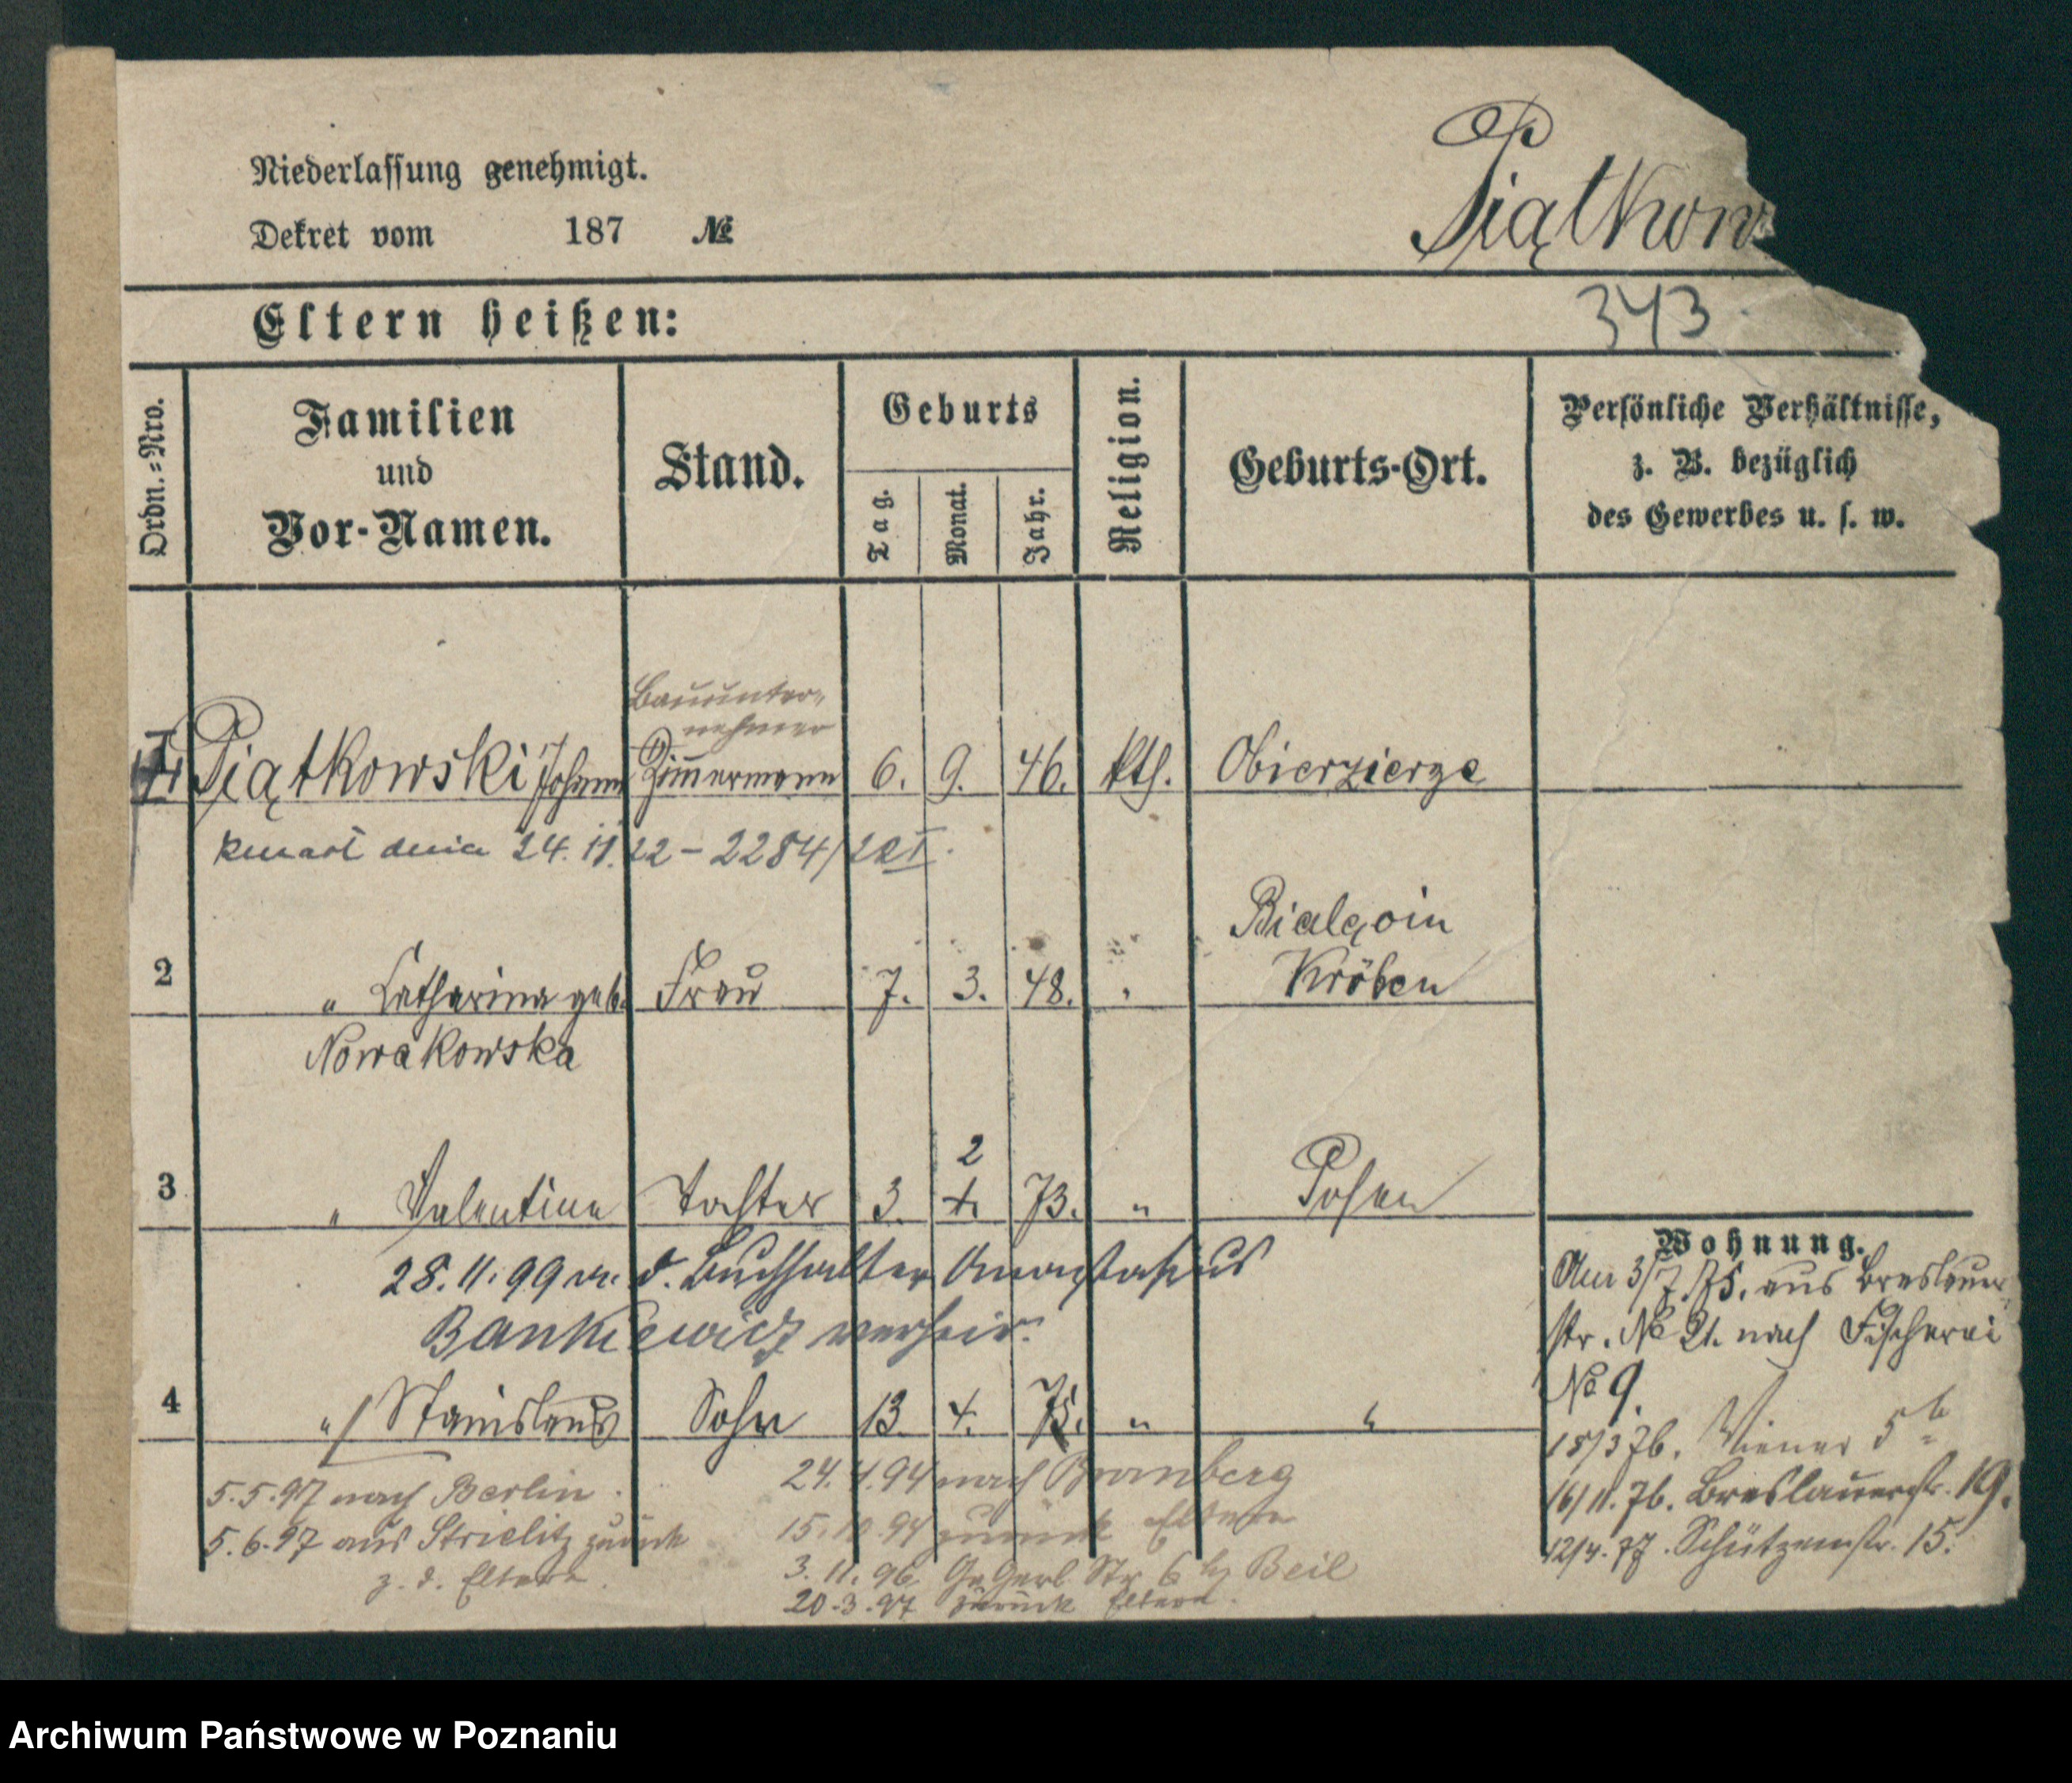 Niederlassung genehmigt.
Dekret vom 187 №
Piątkow
Eltern heißen:
343
Ordn.-Nro.
Familien
und
Vor-Namen.
Stand.
Geburts
Tag.
Monat.
Jahr.
Religion.
Geburts-Ort.
Persönliche Verhältnisse,
z. B. bezüglich
des Gewerbes u. s. w.
Bauunter-
nehmer
Piątkowski Johann Zimmermann 6. 9. 46. kth. Obierzierze
dnia 24. 11. 22 – 2284/22 I.
Bialęzin
2 " Catharina geb. Frau 7. 3. 48. " Kröben
Nowakowska
2
3 " Valentine Tochter 3. 4. 73. " Posen
28.11.99 m. d. Buchhalter Anastasius
Bankiewicz verheir.
4 " Stanislaus Sohn 13. 4. 75. " "
5.5.97 nach Berlin.
5.6.97 aus Strielitz zurück
z. d. Eltern.
24.4.94 nach Bromberg
15.10.94 zurück Eltern
3.11.96. Gr Gerb Str 6 by Beil
20.3.97 zurück Eltern.
Wohnung.
Am 3/7. 75. aus Breslauer
str. № 21. nach Fischerei
№ 9.
15/3 76. Wiener 5 b
16/11. 76. Breslauerstr. 19.
12/4. 77. Schützenstr. 15.
Archiwum Państwowe w Poznaniu